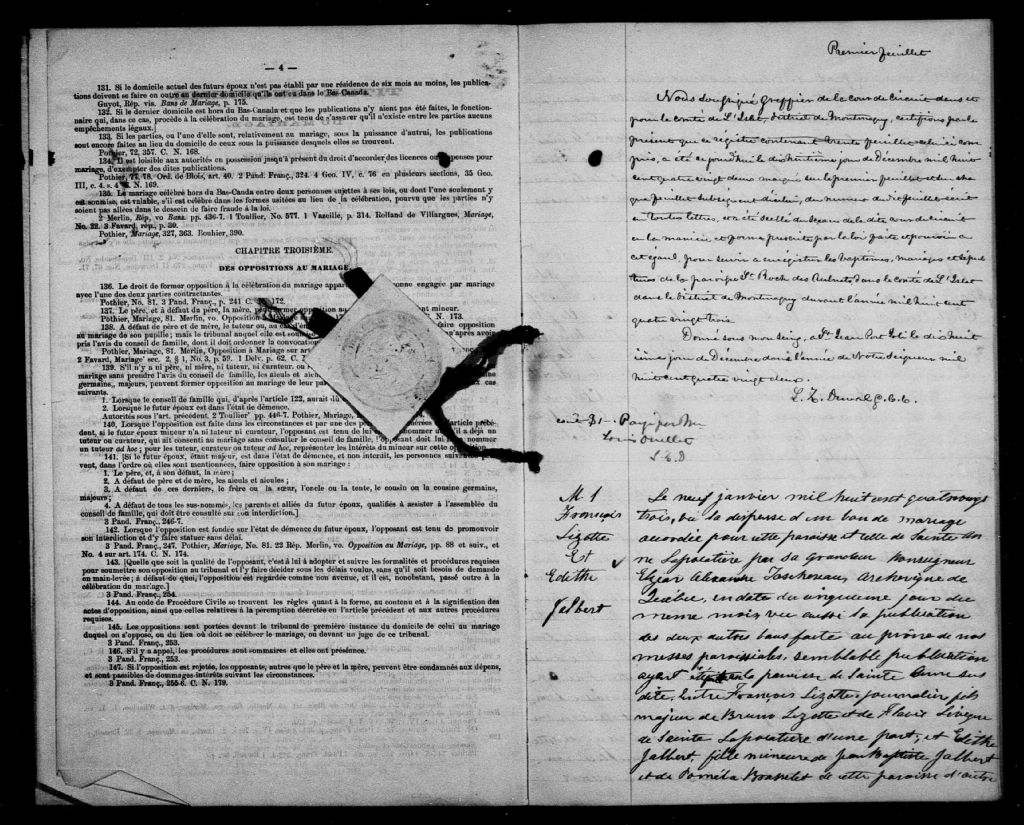 — 4 —
131. Si le domicile actuel des futurs époux n'est pas établi par une résidence de six mois au moins, les publica-
tions doivent se faire en outre au dernier domicile qu'ils ont eu dans le Bas-Canada.
Guyot, Rép. vis. Bans de Mariage, p. 175.
132. Si le dernier domicile est hors du Bas-Canada et que les publications n'y aient pas été faites, le fonction-
naire qui, dans ce cas, procède à la célébration du mariage, est tenu de s'assurer qu'il n'existe entre les parties aucuns
empêchements légaux.]
133. Si les parties, ou l'une d'elle sont, relativement au mariage, sous la puissance d'autrui, les publications
sont encore faites au lieu du domicile de ceux sous la puissance desquels elles se trouvent.
Pothier, 72, 357. C. N. 168.
134. Il est loisible aux autorités en possession jusqu'à présent du droit d'accorder des licences ou dispenses pour
mariage, d'exempter des dites publications.
Pothier, 77, 78. Ord. de Blois, art. 40. 2 Pand. Franç., 324. 4 Geo. IV, c. 76 en plusieurs sections, 35 Geo.
III, c. 4. s. 4 N. 169.
135. Le mariage célébré hors du Bas-Canda entre deux personnes sujettes à ses lois, ou dont l'une seulement y
est soumise, est valable, s'il est célébré dans les formes usitées au lieu de la célébration, pourvu que les parties n'y
soient pas allées dans le dessein de faire fraude à la loi.
2 Merlin, Rép, vo Bans. pp. 436-7. 1 Toullier, No. 577. 1 Vazeille, p. 314. Rolland de Villargues, Mariage,
No. 22. 3 Favard, rép., p. 30.
Pothier, Mariage, 327, 363. Bouhier, 390.
CHAPITRE TROISIÈME.
DES OPPOSITIONS AU MARIAGE.
136. Le droit de former opposition à la célébration du mariage appar onne engagée par mariage
avec l'une des deux parties contractantes.
Pothier, No. 81. 3 Pand. Franç., p. 241 C. 172.
137. Le père, et à défaut du père, la mère, peu former opposition au ant mineur.
Pothier, Mariage, 81. Merlin, vo. Opposition N. 173.
138. A défaut de père et de mère, le tuteur ou, au cas faire opposition
au mariage de son pupille; mais le tribunal auquel elle est sou après avoir
pris l'avis du conseil de famille, dont il doit ordonner la convocation
Pothier, Mariage, 81. Merlin, Opposition à Mariage sur ar
2 Favard, Mariage' sec. 2, § 1, No. 3, p. 59. 1 Delv, p. 62. C.
139. S'il n'y a ni père, ni mère, ni tuteur, ni curateur, ou
mariage sans prendre l'avis du conseil de famille, les aïeuls et aïeu
germains,, majeurs, peuvent former opposition au mariage de leur pa cas
suivants.
1. Lorsque le conseil de famille qui, d'après l'article 122, aurait dû
2. Lorsque le futur époux est dans l'état de démence.
Autorités sous l'art. précédent. 2 Toullier' pp. 446-7. Pothier, Mariage,
140. Lorsque l'opposition est faite dans les circonstances et par une des p érées en l'article précé-
dent, si le futur époux mineur n'a ni tuteur ni curateur, l'opposant est tenu de lui nommer un; s'il a déjà un
tuteur ou curateur, qui ait consenti au mariage sans consulter le conseil de famille, l'opposant doit lui nommer
un tuteur ad hoc; pour les tuteur, curateur ou tuteur ad hoc, représenter les intérêts du mineur sur cette opposition.
141. Si le futur époux, étant majeur, est dans l'état de démence, et non interdit, les personnes suivantes pe
vent, dans l'ordre où elles sont mentionnées, faire opposition à son mariage:
1. Le père, et, à son défaut, la mère;
2. A défaut de père et de mère, les aïeuls et aïeules;
3. A défaut de ces derniers, le frère ou la sœur, l'oncle ou la tente, le cousin ou la cousine germains,
majeurs;
4. A défaut de tous les sus-nommés, les parents et alliés du futur époux, qualifiés à assister à l'assemblée du
conseil de famille, qui doit être consulté sur son interdiction.]
3 Pand. Franç., 246-7.
142. Lorsque l'opposition est fondée sur l'état de démence du futur époux, l'opposant est tenu de promouvoir
son interdiction et d'y faire statuer sans délai.
3 Pand. Franç., 247. Pothier, Mariage, No. 81. 22 Rép. Merlin, vo. Opposition au Mariage, pp. 88 et suiv., et
No. 4 sur art. 174. C. N. 174.
143. [Quelque que soit la qualité de l'opposant, c'est à lui à adopter et suivre les formalités et procédures requises
pour soumettre son opposition au tribunal et l'y faire décider sous les délais voulus, sans qu'il soit besoin de demande
en main-levée; à défaut de quoi, l'opposition est regardée comme non avenue, et il est, nonobstant, passé outre à la
célébration du mariage.]
3 Pand. Franç., 254.
144. Au code de Procédure Civile se trouvent les règles quant à la forme, au contenu et à la signification des
actes d'opposition, ainsi que celles relatives à la péremption décrétée en l'article précédent et aux autres procédures
requises.
145. Les oppositions sont portées devant le tribunal de première instance du domicile de celui au mariage
duquel on s'oppose, ou du lieu où doit se célébrer le mariage, ou devant un juge de ce tribunal.
3 Pand. Franç., 253.
146. S'il y a appel, les procédures sont sommaires et elles ont préséance.
3 Pand. Franç., 253.
147. Si l'opposition est rejetée, les opposants, autres que le père et la mère, peuvent être condamnés aux dépens,
et sont passibles de dommages-intérêts suivant les circonstances.
3 Pand. Franç., 255-6. C. N. 179.
Premier feuillet
Nous soussigné Greffier de la cour de Circuit dans et
pour le Comté de L'Islet, district de Montmagny, certifions par le
présent que ce registre contenant trente feuillets celui-ci com
pris, a été ce jourd'hui le dix huitième jour de Décembre mil huit
cent quatre vingt deux marqué sur le premier feuillet et sur cha
que feuillet subséquent d'icelui, du numéro du dit feuillet écrit
en toutes lettres, et a été scellé du sceau de la dite cour de circuit
en la manière et forme prescrite par la loi faite et pourvue à
cet égard, pour servir à enregistrer les baptêmes, mariages et sépul
tures de la paroisse St Roch des Aulnets, dans le comté de L'Islet
dans le District de Montmagny durant l'année mil huit cent
quatre vingt trois.
Donné sous mon seing, à St Jean Port Joli le dix huit
ième jour de Décembre dans l'année de Notre Seigneur mil
huit cent quatre vingt deux.
L. Z. Duval G.C.C.
Payé par Mr
Louis Ouellet
M. 1
François
Lizotte
Et
Edithe
Jalbert
Le neuf janvier mil huit cent quatrevingt
trois, vu la dispense d'un ban de mariage
accordée pour cette paroisse et celle de Sainte An
ne Lapocatière par sa Grandeur Monseigneur
Elzéar Alexandre Taschereau Archevêque de
Québec, en date du cinquième jour du
même mois vu aussi la publication
des deux autres bans faite au prône de nos
messes paroissiales, semblable publication
ayant été la paroisse de Sainte Anne sus
dite, Entre François Lizotte, journalier, fils
majeur de Bruno Lizotte et de Flavie Lévêque
de Sainte Lapocatière d'une part; et Edithe
Jalbert, fille mineure de Jean Baptiste Jalbert
et de Paméla de cette paroisse d'autre